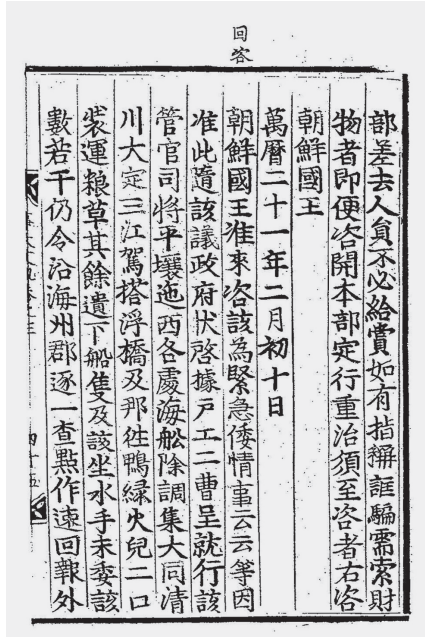 回答
部差去人負不必給賞如有指稱誆騙需索財
物者即便咨開本部定行重治須至咨者右咨
朝鮮國王
萬曆二十一年二月初十日
朝鮮國王准來咨該為緊急倭情事云云等因
准此隨該議政府狀啓據戶工二曹呈就行該
管官司將平壤迤西各處海舩除調集大同清
川大定三江駕搭浮橋及那徃鴨綠火兒二口
裝運粮草其餘遺下船隻及該坐水手未委該
數若干仍令沿海州郡逐一查點作速回報外
四十五